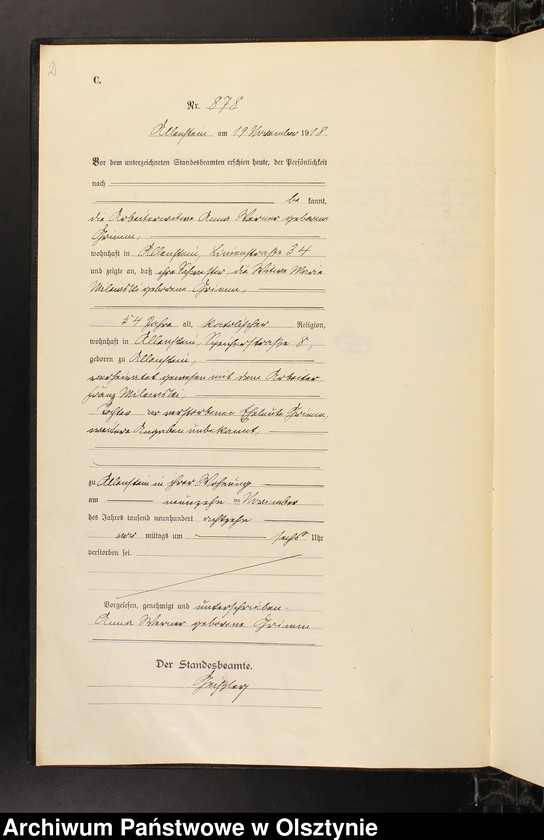 D
C.
Nr. 878
Allenstein am 19 November 1918.
Vor dem unterzeichneten Standesbeamten erschien heute, der Persönlichkeit
nach
be kannt,
die Arbeiterwitwe Anna Werner geborene
Grimm,
wohnhaft in Allenstein, Liebenstraße 34
und zeigte an, daß ihre Schwester, die Witwe Marie
Milewski geborene Grimm,
54 Jahre alt, katolischer Religion,
wohnhaft in Allenstein, Speicherstraße 8,
geboren zu Allenstein,
verheiratet gewesen mit dem Arbeiter
Franz Milewski,
Tochter der verstorbenen Eheleute Grimm,
weitere Angaben unbekannt,
zu Allenstein in ihrer Wohnung
am neunzehn ten November
des Jahres tausend neunhundert achtzehn
vor mittags um sechs Uhr
verstorben sei.
Vorgelesen, genehmigt und unterschrieben.
Anna Werner geborene Grimm
Der Standesbeamte.
Archiwum Państwowe w Olsztynie